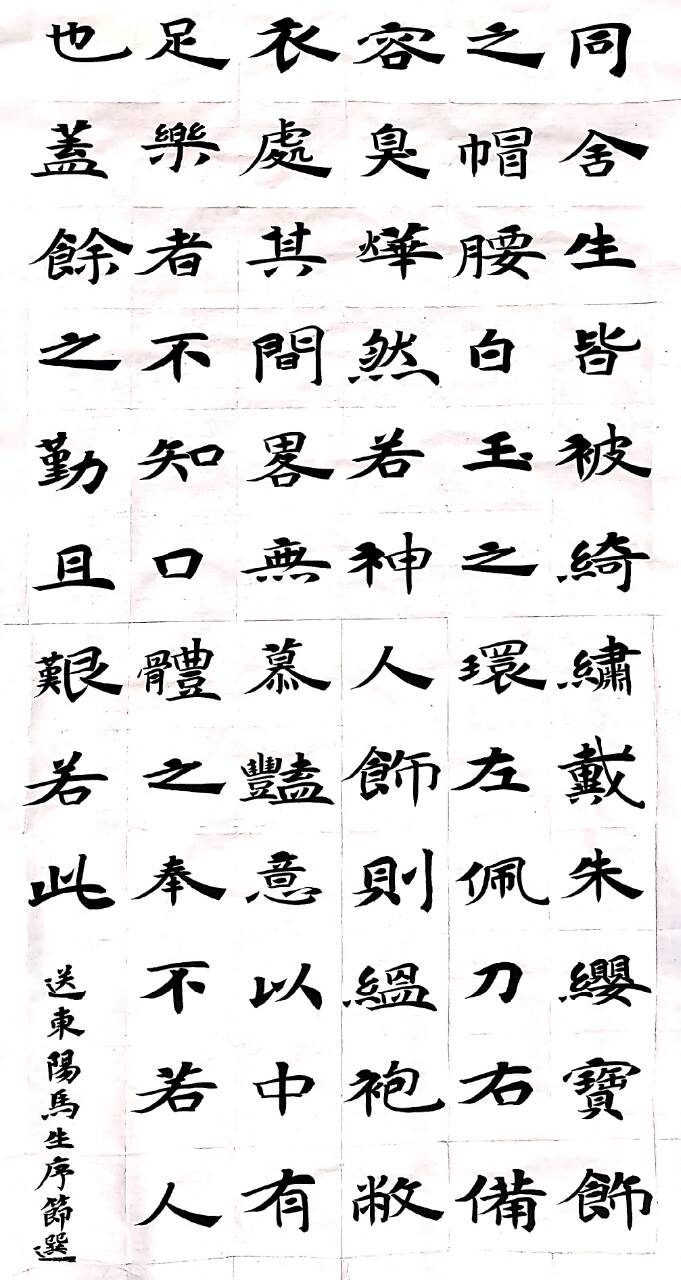 同舍生皆被綺繡戴朱纓寶飾
之帽腰白玉之環左佩刀右備
容臭燁然若神人飾則縕袍敝
衣處其間畧無慕豔意以中有
足樂者不知口體之奉不若人
也蓋餘之勤且艱若此
送東陽馬生序節選